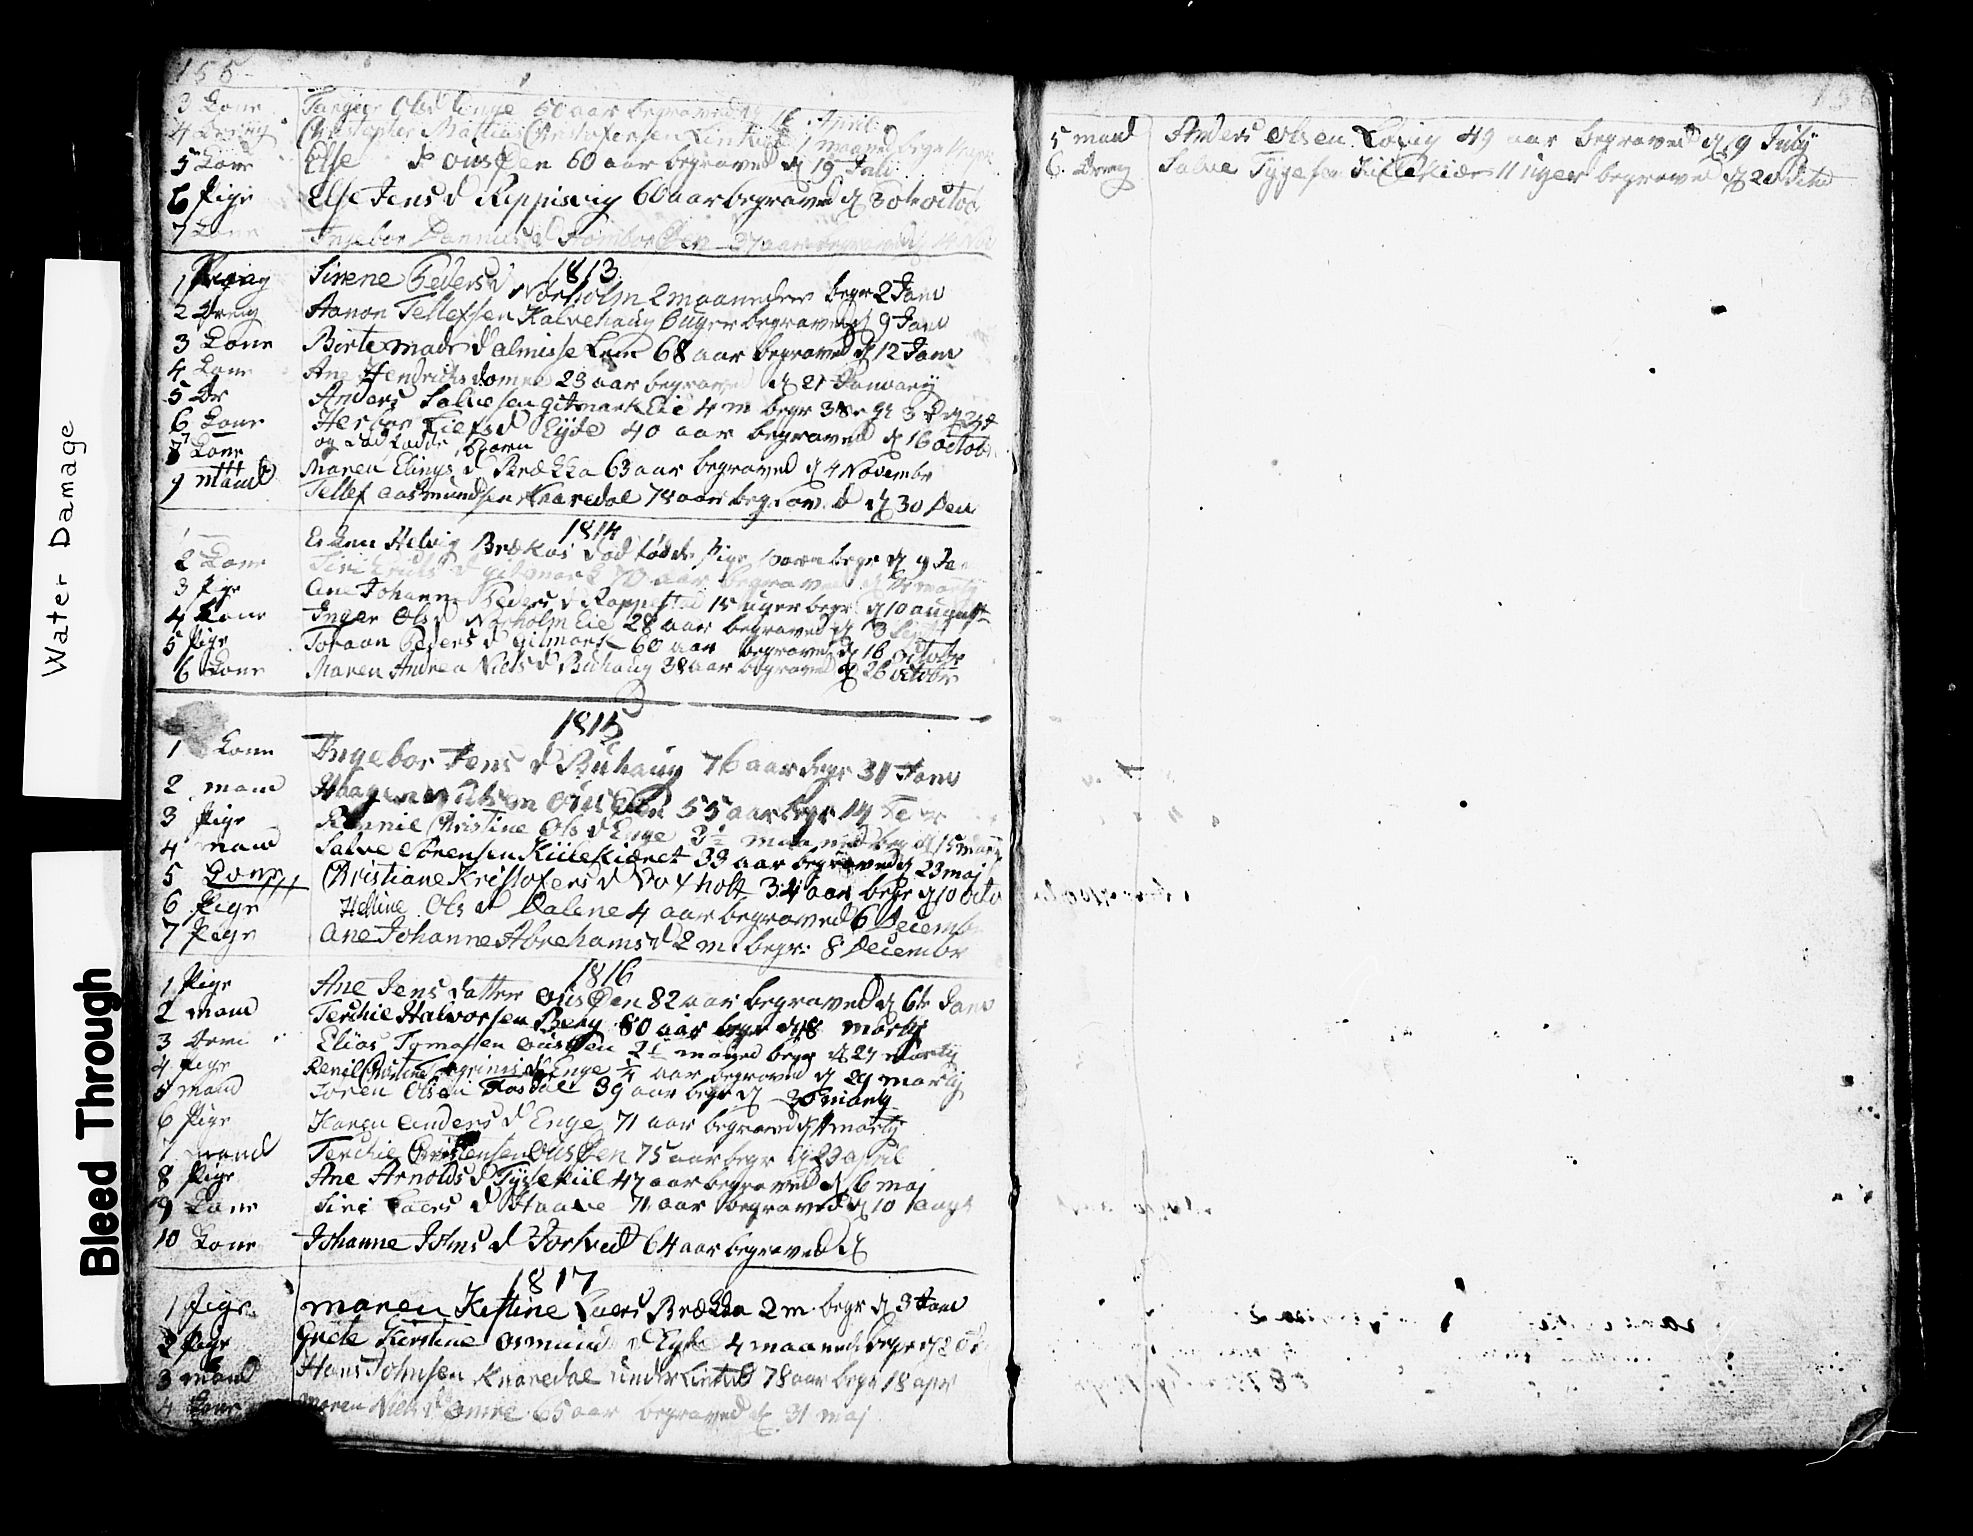 155
3 Kone Targier Olsd Enge 50 aar begraved d 16 April
4 Dreng Christopher Mattias Christofersen 1 maaned begr
5 Kone Else d OusØen 60 aar begraved d 19 Juli
6 Pige Else Jens d Reppisvig 60 aar begraved d 30te octob
7 Kone Ingebor d 37 aar begraved d 14 Nov
1813
1 Sirene Peders d Norholm 2 maaneder begr 2 Janv
2 Dreng Aanon Tellefsen Kalvehaug 6 uger begraved d 9 Janv
3 Kone Birte Mads d almisse Lem 68 aar begraved d 12 Janv
4 Kone Ane Hendrichs d omre 23 aar begraved d 21 Januarij
5 Dr Anders Salvesen Gitmark Eie 4 m begr
6 Kone Herbor d Eyde 40 aar begraved d 16 octob
7 og dødfødte Barn
8 Kone Maren Elings d Brækka 63 aar begraved d 4 Novembr
9 Mand Tellef Aasmundsen Knaredal 78 aar d 30 Den
1814
1 Helvig Brækas dødfødde Pige barn begr d 9 Ja
2 Kone Siri d Gitmark 70 aar begraved d martij
3 Pige Ane Johanne Peders d Roppestad 15 uger begr d 10 august
4 Kone Inger Ols d Norholm Eie 28 aar begraved d 3
5 Pige Toraan Peders d Gitmark 60 aar begraved d 16 octobr
6 Kone Maren Andrea Niels d Buhaug 38 aar begraved d 26 octobr
1815
1 Kone Ingebor Jens d Buhaug 76 aar begr 31 Janv
2 mand Haagen OusØen 55 aar begr 14 Fe
3 Pige Christine Ols d Enge 3½ maaned beg d 15 mar
4 mand Salve Sørensen Kiilekiæret 33 aar begraved d 23 maj
5 Kone Christiane Kristofers d Voxholt 34 aar begr d 10 octo
6 Pige Helline Ols d Dalene 4 aar begraved 6 Decemb
7 Pige Ane Johanne Abrehams d 2 m: begr: 8 Decembr
1816
1 Pige Ane Jens datter OusØen 82 aar begraved d 6te Janv
2 mand Terchie Halvorsen Berg 80 aar begr d 8 martij
3 Elias Tomassen OusØen 2½ maaned begr d 27 martij
4 Pige Renil Christine d Enge ¼ aar begraved d 29 martij
5 mand Soren Olsen Fosdal 39 aar begr d 30 martij
6 Pige Karen Anders d Enge 71 aar begraved d martij
7 mand Terchie Christensen OusØen 75 aar begr d 23 april
8 Pige Ane Arnolds d Tysekiil 47 aar begraved d 6 maj
9 Kone Siri d Haave 71 aar begraved d 10 aug
10 Kone Johanne Johns d Tortved 64 aar begraved d
1817
1 Pige Maren Kistine Lars Brækka 2 m. begr d 3 Janv
2 Pige Grete Kirstine Osmund d Eyde 4 maaned begr d 2
3 mand Hans Johnsen Knaredal under Lintved 78 aar begr 18 apr
4 Kone Maren Niels d omre 65 aar begraved d 31 maj
5 mand Anders Olsen Løvig 49 aar begraved d 9 July
6 Dreng Salve Tygesen Kiillekiær 11 uger begraved d 20 dito
Water Damage
Bleed Through